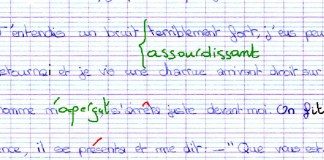 J'entendis un bruit terriblement fort, j'eus peu
assourdissant
retournai et je vis une charrue arrivant droit sur
homme m'aperçut s'arrêta juste devant moi. On fit
il se présenta et me dit : – "Que vous est